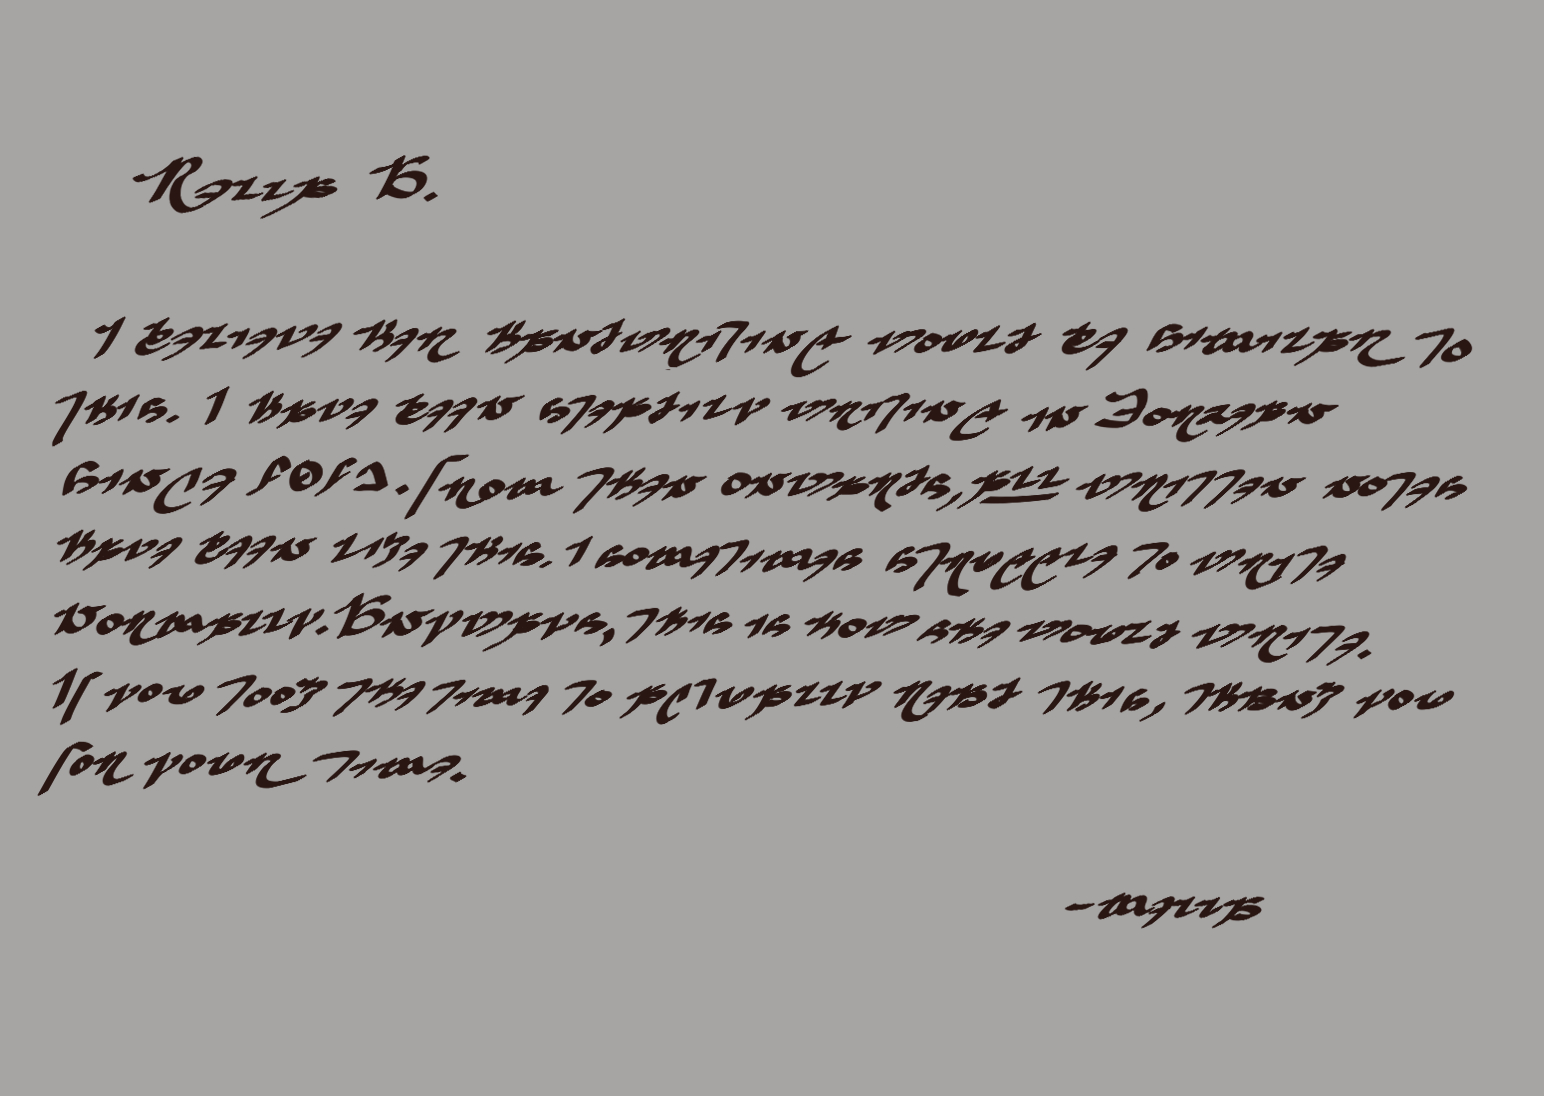 Rella A.
I believe her handwriting would be similar to
this. I have been steadily writing in
since From then onwards, all written notes
have been like this. I sometimes struggle to write
normally. Anyways, this is how she would write.
If you took the time to actually read this, thank you
for your time.
-mella